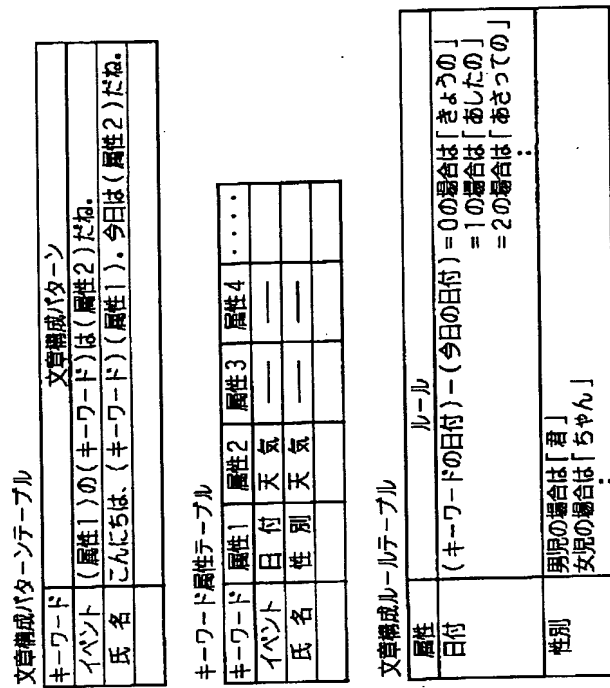 文章構成パターンテーブル
キーワード 文章構成パターン
イベント (属性1)の(キーワード)は(属性2)だね。
氏 名 こんにちは、(キーワード)(属性1)。今日は(属性2)だね。
キーワード属性テーブル
キーワード 属性1 属性2 属性3 属性4 ....
イベント 日 付 天 気 — —
氏 名 性 別 天 気 — —
文章構成ルールテーブル
属性 ルール
日付 (キーワードの日付)-(今日の日付)=0の場合は「きょうの」
=1の場合は「あしたの」
=2の場合は「あさっての」
:
性別 男児の場合は「君」
女児の場合は「ちゃん」
: